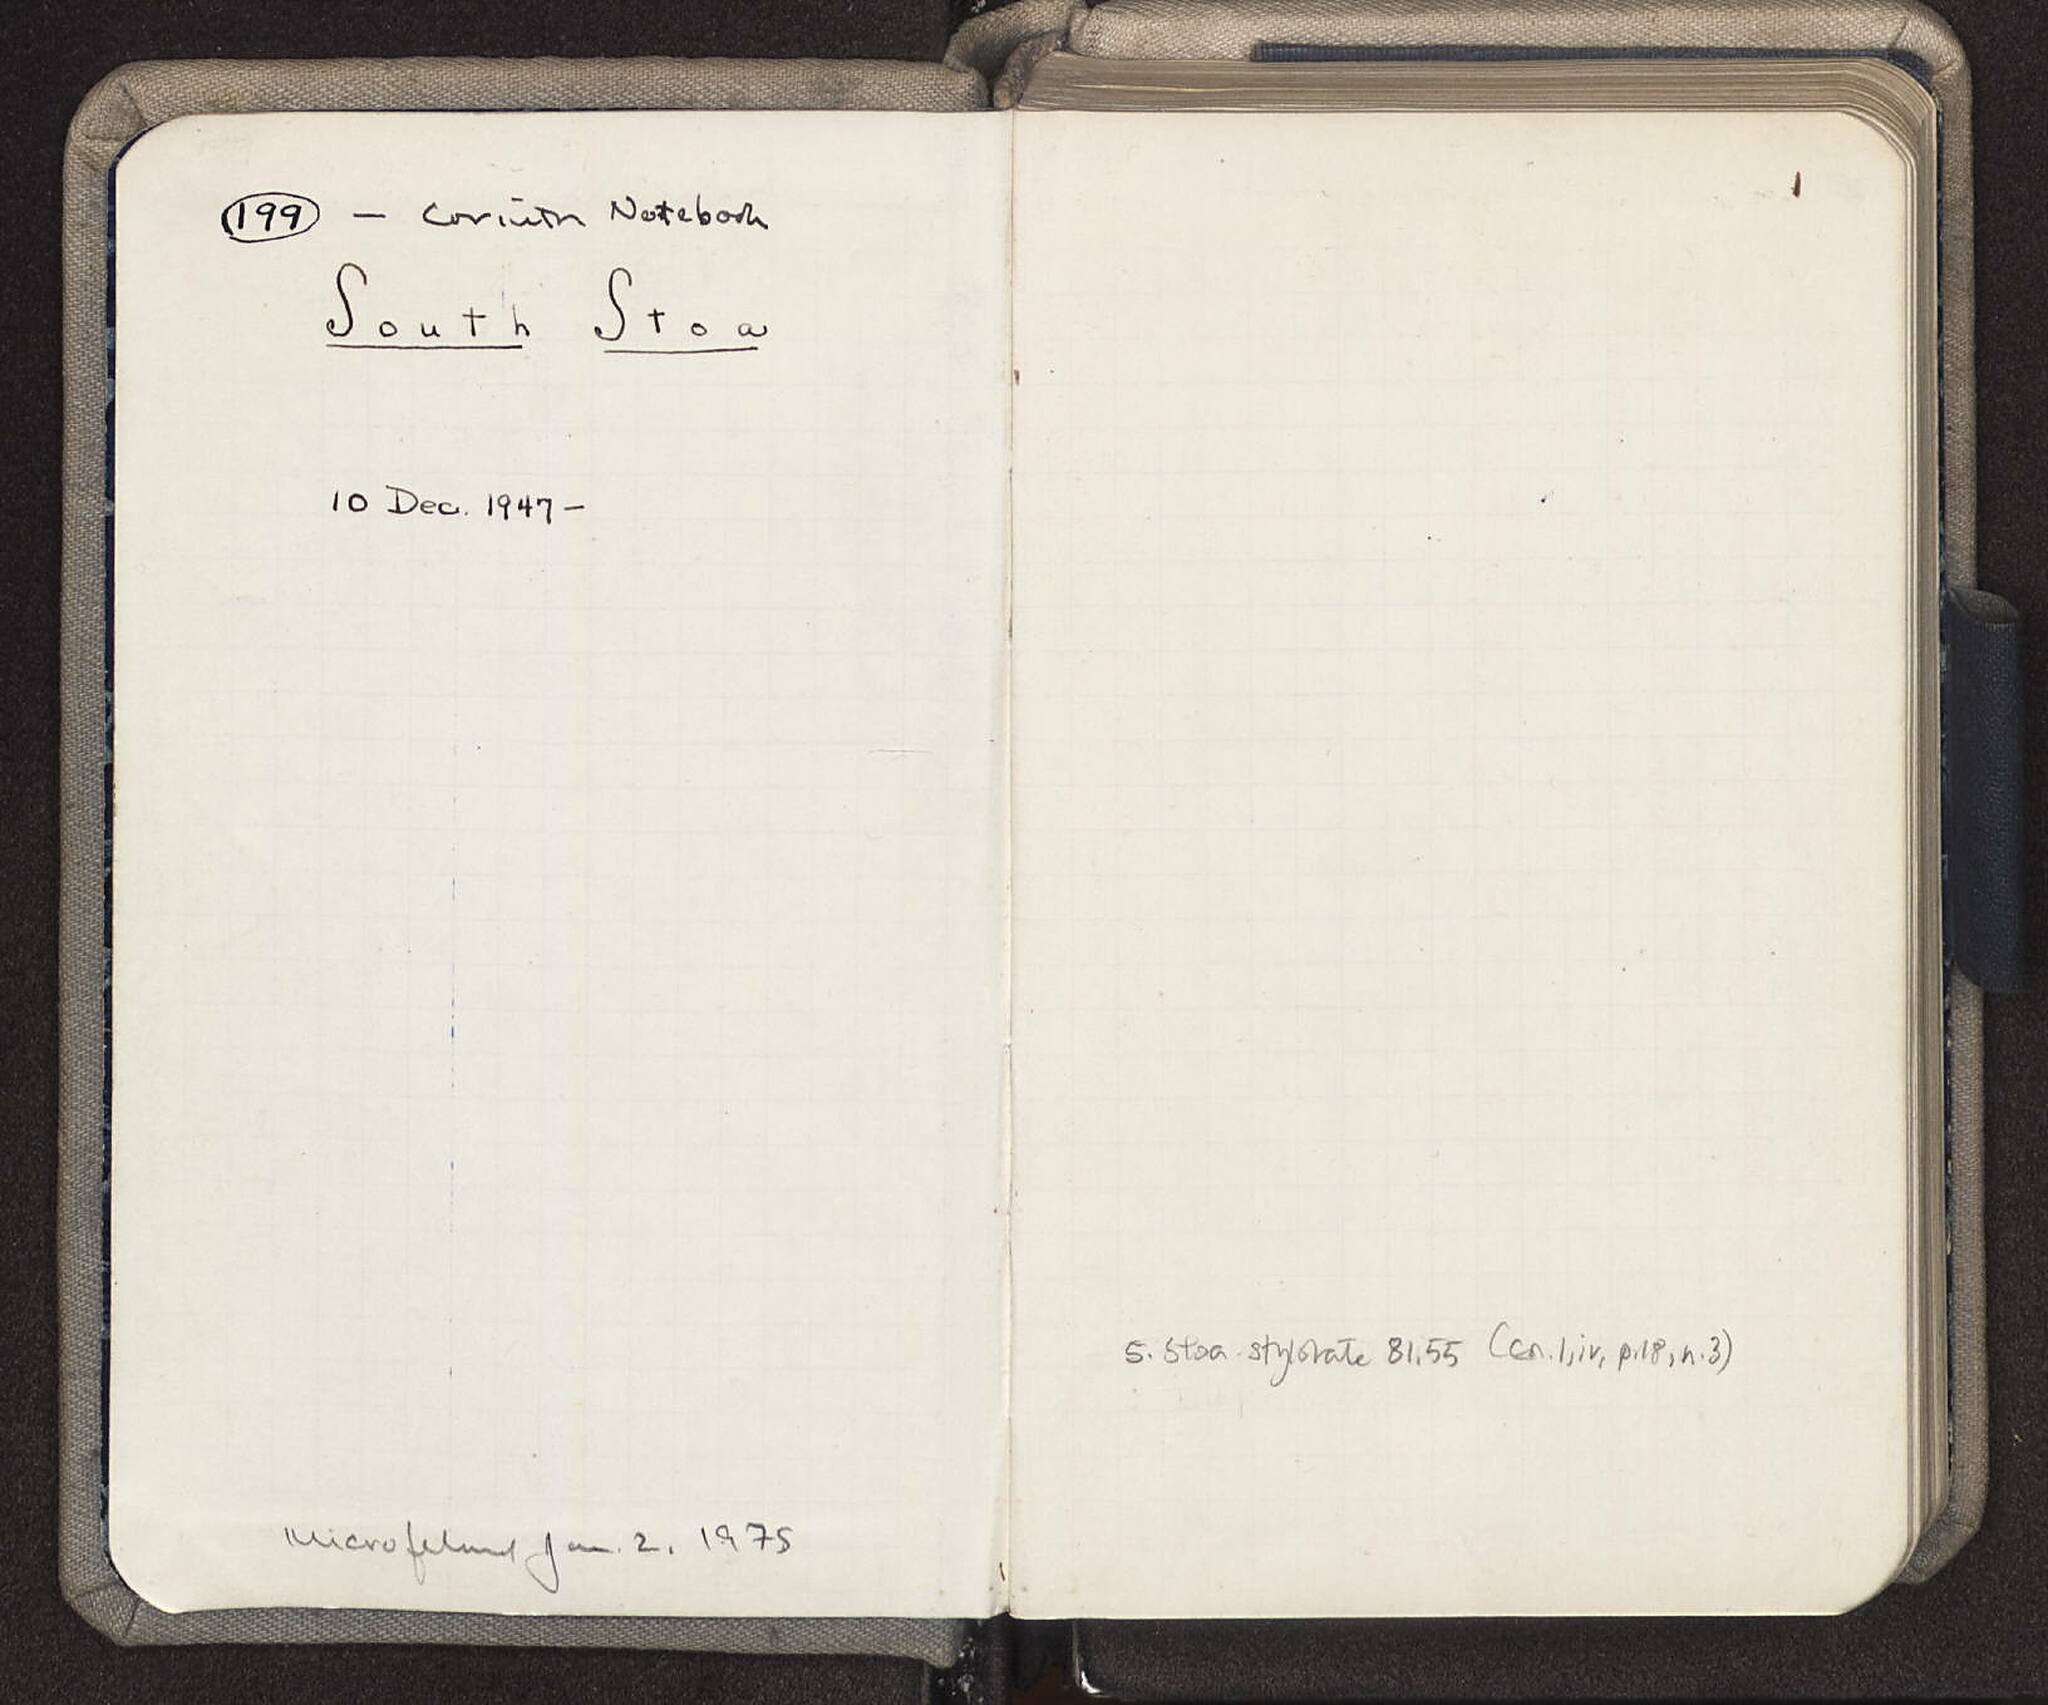 199 — Corinth Notebook
South Stoa
10 Dec. 1947 –
Microfilmed Jan. 2, 1975
1
S. Stoa stylobate 81.55 (Cor. I, iv, p.18, n.3)